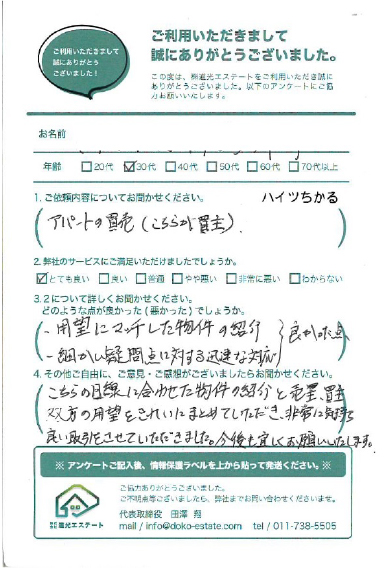 ご利用いただきまして
誠にありがとう
ございました!
ご利用いただきまして
誠にありがとうございました。
この度は、㈱道光エステートをご利用いただき誠に
ありがとうございました。以下のアンケートにご協
力お願いいたします。
お名前
年齢 □20代 ☑30代 □40代 □50代 □60代 □70代以上
1. ご依頼内容についてお聞かせください。 ハイツちかる
アパートの売買(こちらが買主)
2. 弊社のサービスにご満足いただけましたでしょうか。
☑とても良い □良い □普通 □やや悪い □非常に悪い □わからない
3. 2について詳しくお聞かせください。
どのような点が良かった(悪かった)でしょうか。
- 要望にマッチした物件の紹介
- 細かい疑問点に対する迅速な対応
良かった点
4. その他ご自由に、ご意見・ご感想がございましたらお聞かせください。
こちらの目線に合わせた物件の紹介と売主、買主
双方の要望をきれいにまとめていただき、非常に気持ち
良い取引をさせていただきました。今後も宜しくお願いいたします。
※ アンケートご記入後、情報保護ラベルを上から貼って発送ください。※
ご協力ありがとうございました。
ご不明点等ございましたら、弊社までお問い合わせくださいませ。
代表取締役 田澤
株式会社 道光エステート
mail / info@doko-estate.com tel / 011-738-5505